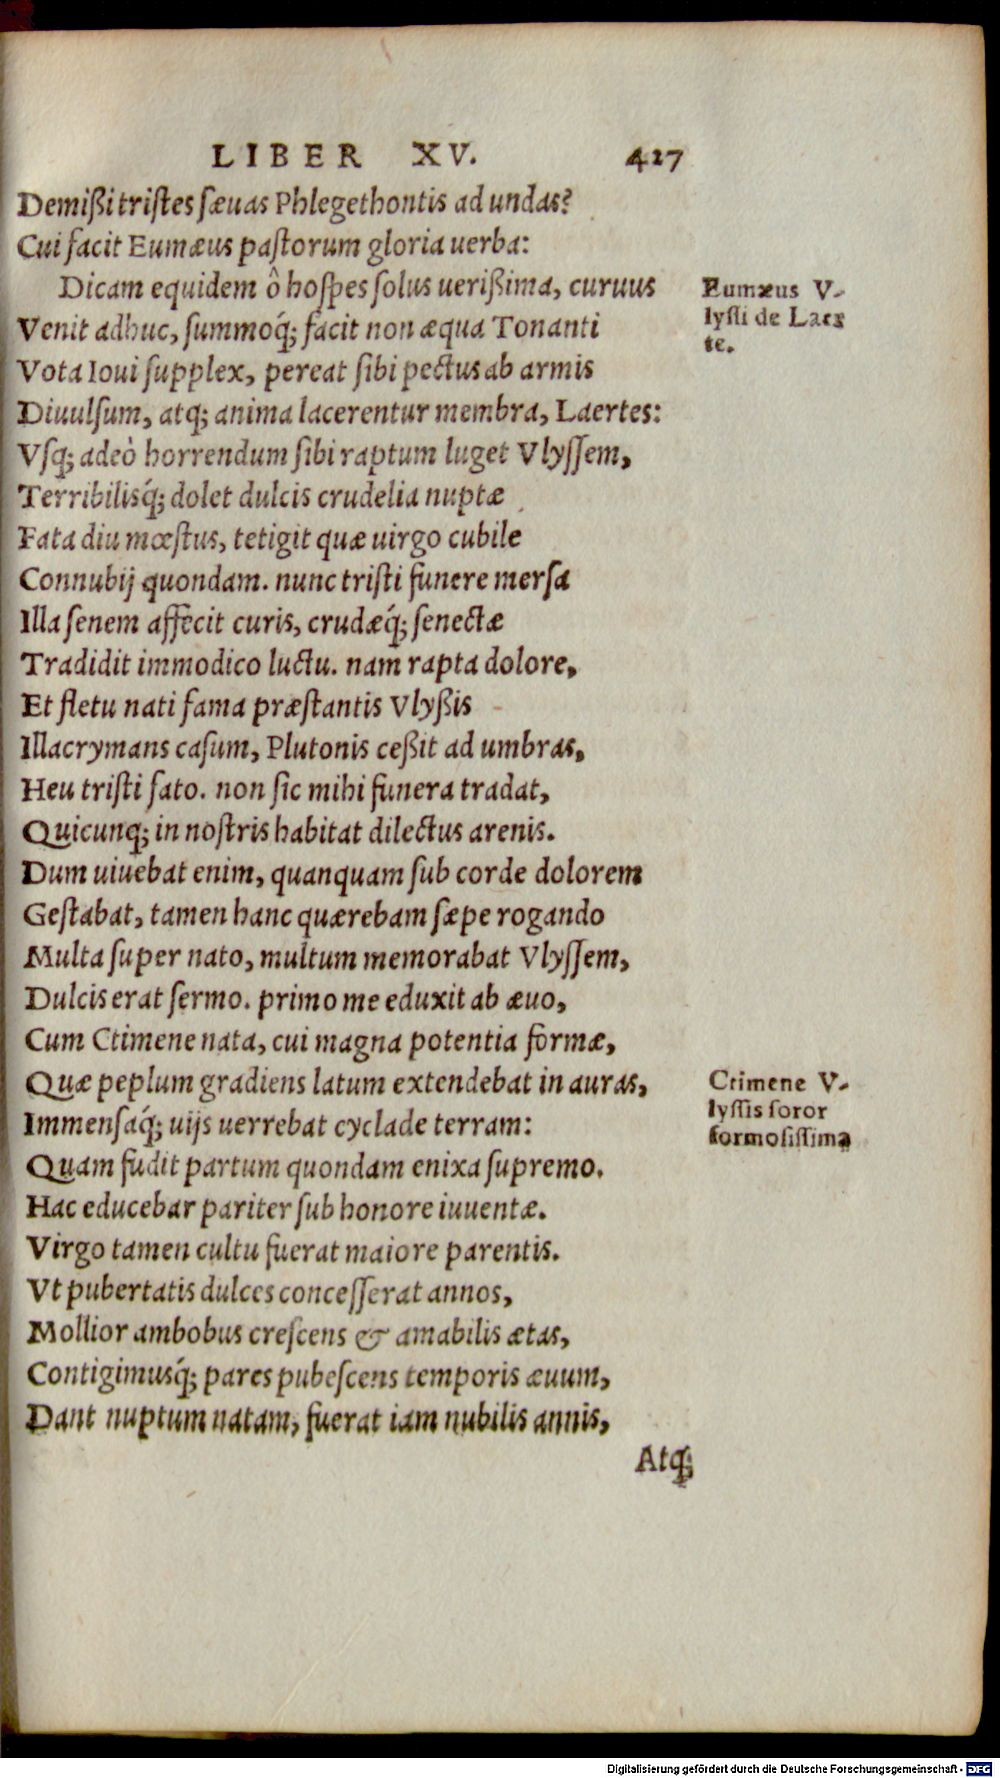 LIBER XV. 427
Demißi tristes sæuas Phlegethontis ad undas?
Cui facit Eumæus pastorum gloria uerba:
Dicam equidem ô hospes solus uerißima, curuus
Eumæus V-
Venit adhuc, summoq́; facit non æqua Tonanti
lyssi de Laer
Vota Ioui supplex, pereat sibi pectus ab armis
te.
Diuulsum, atq; anima lacerentur membra, Laertes:
Vsq; adeò horrendum sibi raptum luget Vlyssem,
Terribilisq́; dolet dulcis crudelia nuptæ
Fata diu mœstus, tetigit quæ uirgo cubile
Connubij quondam. nunc tristi funere mersa
Illa senem affecit curis, crudæq́; senectæ
Tradidit immodico luctu. nam rapta dolore,
Et fletu nati fama præstantis Vlyßis
Illacrymans casum, Plutonis ceßit ad umbras,
Heu tristi fato. non sic mihi funera tradat,
Quicunq; in nostris habitat dilectus arenis.
Dum uiuebat enim, quanquam sub corde dolorem
Gestabat, tamen hanc quærebam sæpe rogando
Multa super nato, multum memorabat Vlyssem,
Dulcis erat sermo. primo me eduxit ab æuo,
Cum Ctimene nata, cui magna potentia formæ,
Quæ peplum gradiens latum extendebat in auras,
Ctimene V-
Immensaq́; uijs uerrebat cyclade terram:
lyssis soror
formosissima
Quam fudit partum quondam enixa supremo.
Hac educebar pariter sub honore iuuentæ.
Virgo tamen cultu fuerat maiore parentis.
Vt pubertatis dulces concesserat annos,
Mollior ambobus crescens & amabilis ætas,
Contigimusq́; pares pubescens temporis æuum,
Dant nuptum natam, fuerat iam nubilis annis,
Atq;
Digitalisierung gefördert durch die Deutsche Forschungsgemeinschaft - DFG